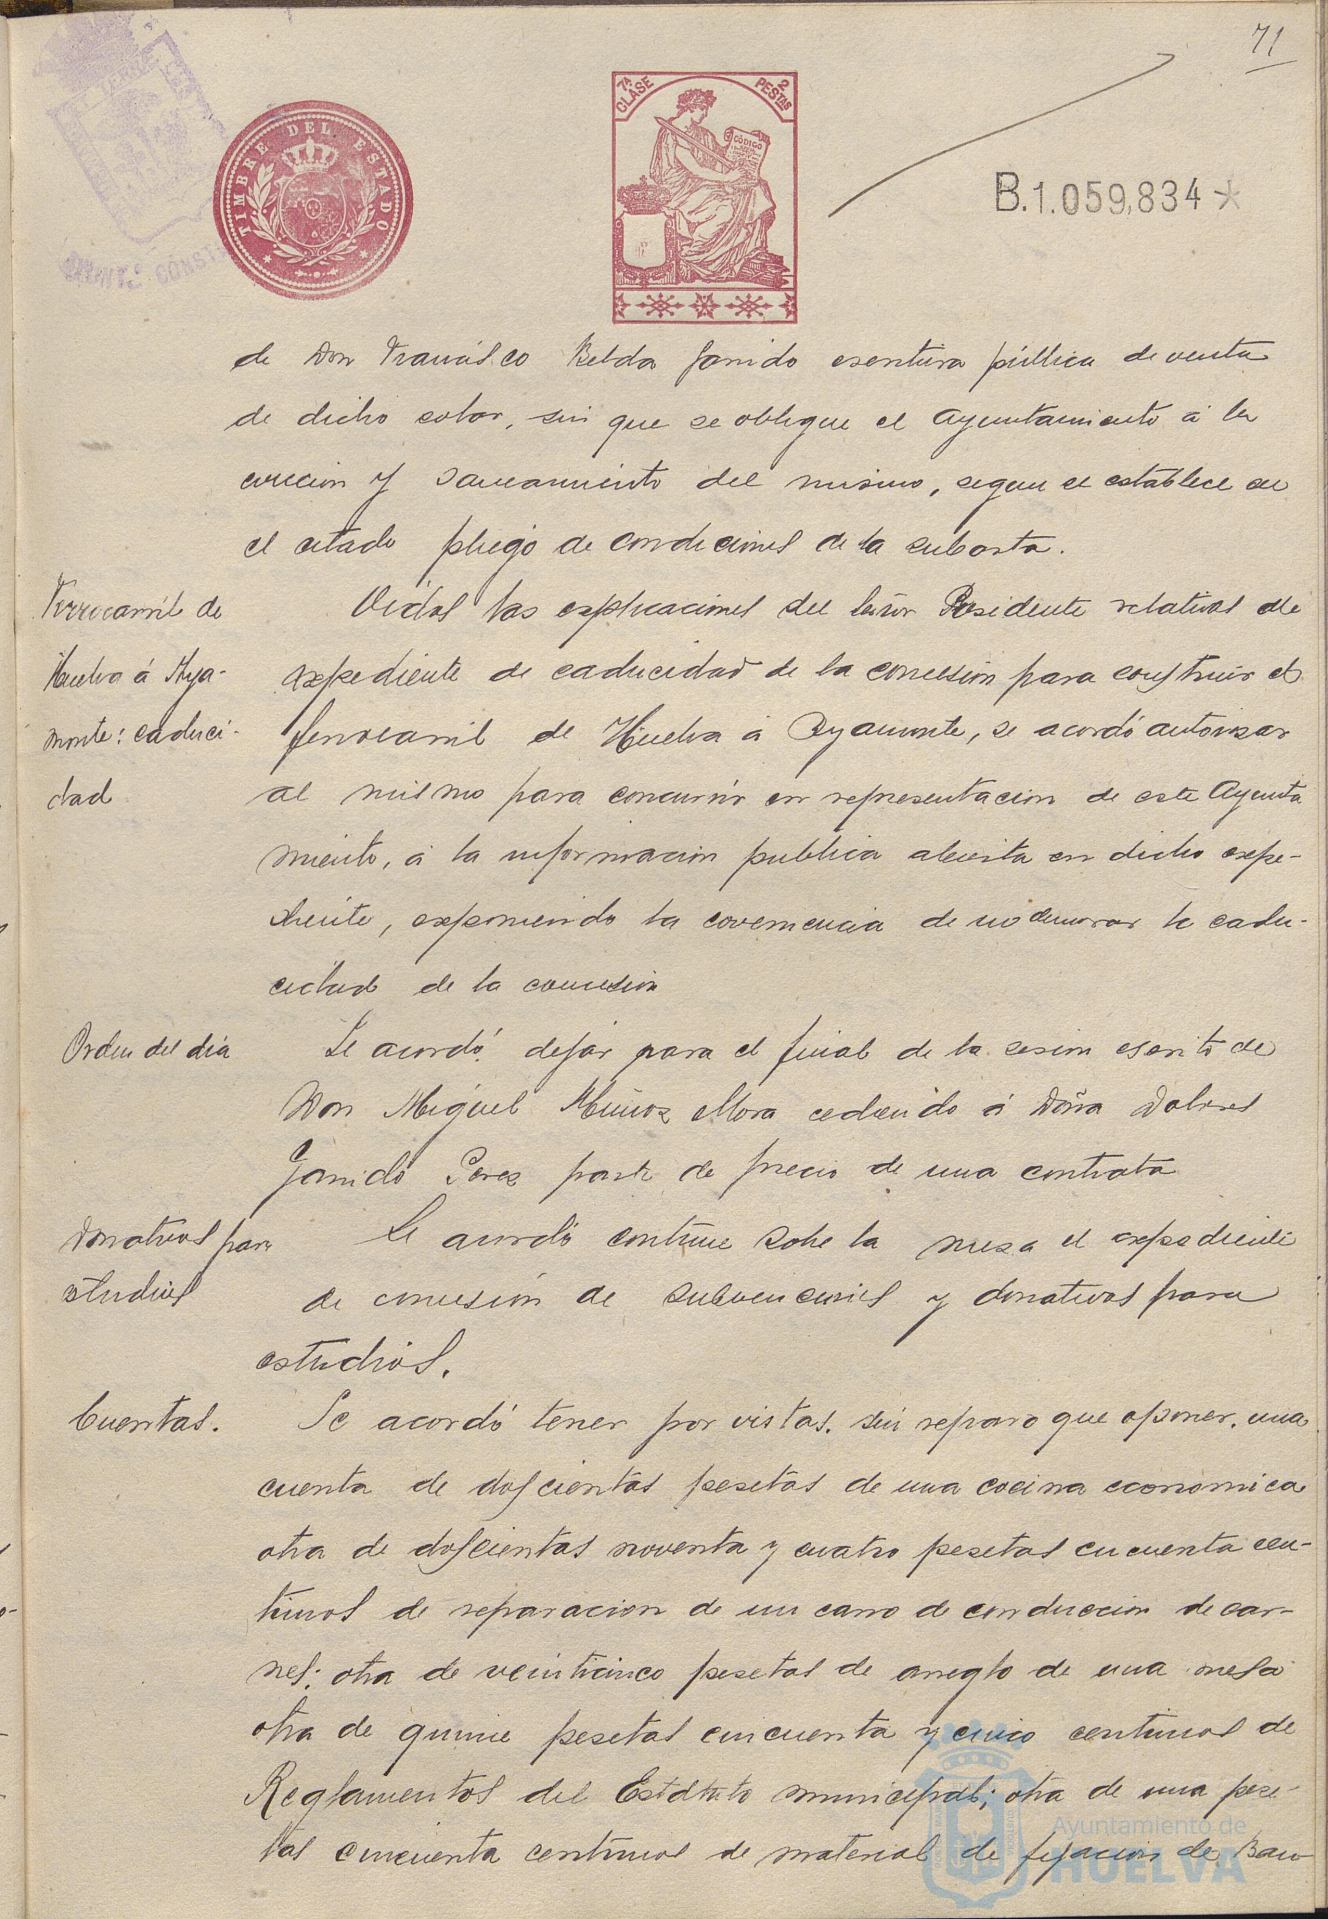 71
7ª CLASE
2 PESTAS
CÓDIGO
TIMBRE DEL ESTADO
B.1.059,834
de Don Francisco Belda Garrido escritura pública de venta
de dicho solar, sin que se obligue el Ayuntamiento á la
evicción y saneamiento del mismo, segun se establece en
el citado pliego de condiciones de la subasta.
Ferrocarril de
Huelva á Aya-
monte: caduci-
dad
Oidas las explicaciones del Señor Presidente relativas al
expediente de caducidad de la concesión para construir el
ferrocarril de Huelva á Ayamonte, se acordó autorizar
al mismo para concurrir en representacion de este Ayunta
miento, á la informacion publica abierta en dicho expe-
diente, exponiendo la coveniencia de no demorar la cadu-
cidad de la concesion
Orden del dia
Se acordó dejar para el final de la sesion escrito de
Don Miguel Muñoz Mora cediendo á Doña Dolores
Garrido Perez parte de precio de una contrata
Donativos para
estudios
Se acordó continue sobre la mesa el expediente
de concesión de subvenciones y donativos para
estudios.
Cuentas.
Se acordó tener por vistas, sin reparo que oponer, una
cuenta de doscientas pesetas de una cocina economica
otra de doscientas noventa y cuatro pesetas cincuenta cen-
timos de reparacion de un carro de conduccion de car-
nes; otra de veinticinco pesetas de arreglo de una mesa
otra de quince pesetas cincuenta y cinco centimos de
Reglamentos del Estatuto municipal; otra de una pese-
tas cincuenta centimos de material de fijacion de Ban
Ayuntamiento de
HUELVA